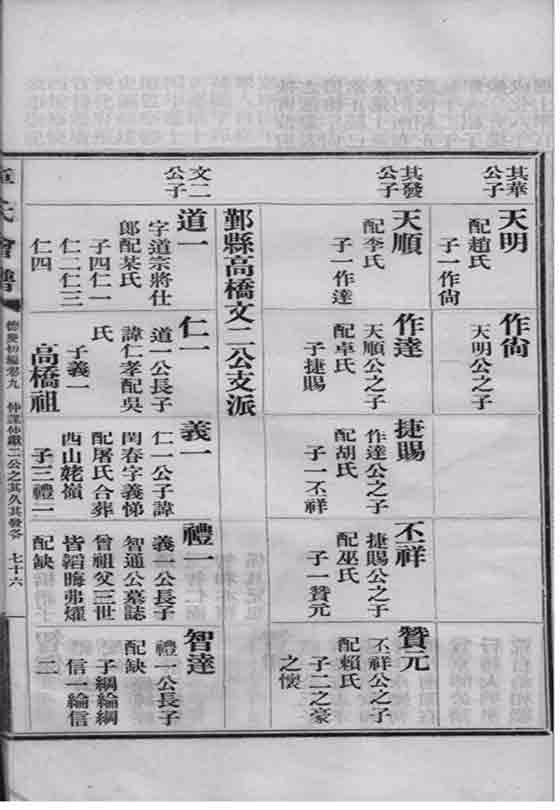 其華
公子
天明
配趙氏
子一作尙
作尙
天明公之子
其發
公子
天順
配李氏
子一作達
作達
天順公之子
配卓氏
子捷賜
捷賜
作達公之子
配胡氏
子一丕祥
丕祥
捷賜公之子
配巫氏
子一贊元
贊元
丕祥公之子
配賴氏
子二之豪
之懷
鄞縣高橋文二公支派
文二
公子
道一
字道宗將仕
郎配某氏
子四仁一
仁二仁三
仁四
仁一
道一公長子
諱仁孝配吳
氏
子義一
高橋祖
義一
仁一公子諱
閏春字義悌
配屠氏合葬
西山姥嶺
子三禮一
禮一
義一公長子
智通公墓誌
曾祖父三世
皆韜晦弗燿
配缺
智達
禮一公長子
配缺
子綱綸綱
信一綸信
二
氏會譜
德慶初編卷九
仲謀仲獻二公之其久其發
七十六